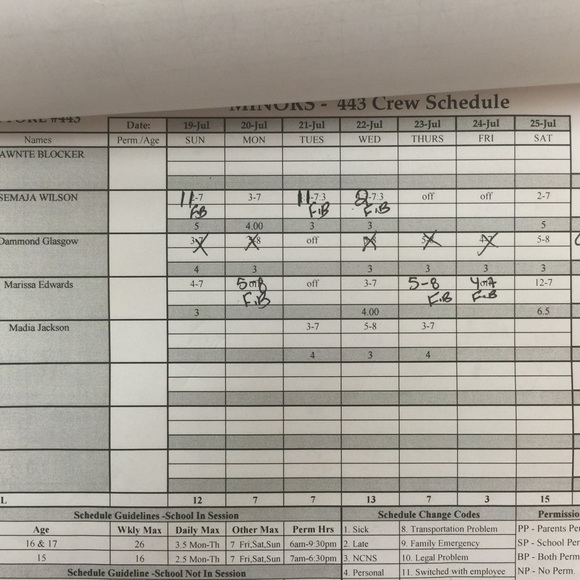 MINORS - 443 Crew Schedule
#443 Date: 19-Jul 20-Jul 21-Jul 22-Jul 23-Jul 24-Jul 25-Jul
Names Perm./Age SUN MON TUES WED THURS FRI SAT
AWNTE BLOCKER
SEMAJA WILSON 11-7 3-7 11-7 3 2-7 3 off off 2-7
F.B F.B F.B
5 4.00 3 3 5
Dammond Glasgow off 5-8
4 3 3 3 3 3
Marissa Edwards 4-7 5 off 3-7 5-8 12-7
F.B F.B F.B
3 4.00 6.5
Madia Jackson 3-7 5-8 3-7
4 3 4
L 12 7 7 13 7 3 15
Schedule Guidelines -School In Session Schedule Change Codes Permissio
Age Wkly Max Daily Max Other Max Perm Hrs 1. Sick 8. Transportation Problem PP - Parents Per
16 & 17 26 3.5 Mon-Th 7 Fri,Sat,Sun 6am-9:30pm 2. Late 9. Family Emergency SP - School Per
15 16 2.5 Mon-Th 7 Fri,Sat,Sun 7am-6:30pm 3. NCNS 10. Legal Problem BP - Both Perm
Schedule Guideline -School Not In Session 4. Personal 11. Switched with employee NP - No Perm